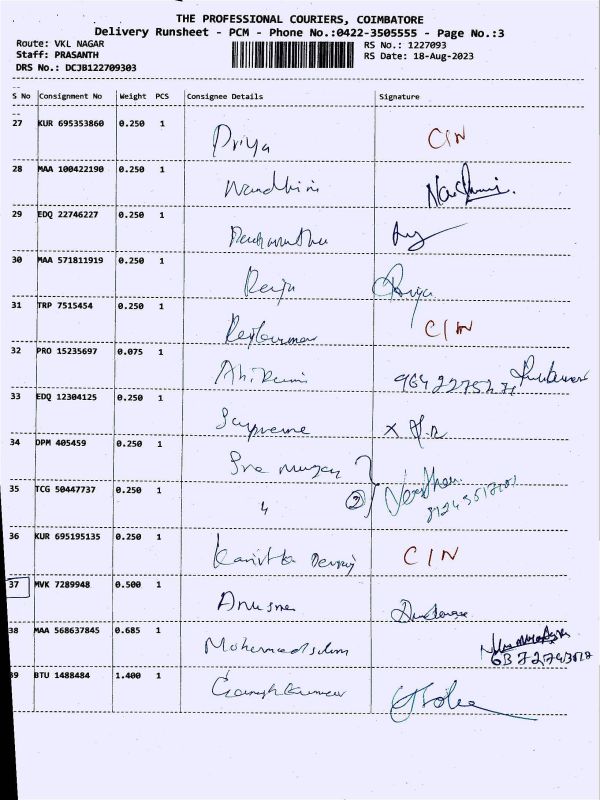 THE PROFESSIONAL COURIERS, COIMBATORE
Delivery Runsheet - PCM - Phone No.:0422-3505555 - Page No.:3
Route: VKL NAGAR
RS No.: 1227093
Staff: PRASANTH
RS Date: 18-Aug-2023
DRS No.: DCJB122709303
S No Consignment No Weight PCS Consignee Details Signature
27 KUR 695353860 0.250 1 Priya CIN
28 MAA 100422190 0.250 1 Nandhini
29 EDQ 22746227 0.250 1
30 MAA 571811919 0.250 1 Priya
31 TRP 7515454 0.250 1 CIN
32 PRO 15235697 0.075 1 Abirami
33 EDQ 12304125 0.250 1 Supreme
34 DPM 405459 0.250 1 Sre murugan
35 TCG 50447737 0.250 1 2
36 KUR 695195135 0.250 1 CIN
37 MVK 7289948 0.500 1 Anusree
38 MAA 568637845 0.685 1
39 BTU 1488484 1.400 1 Ganeshkumar